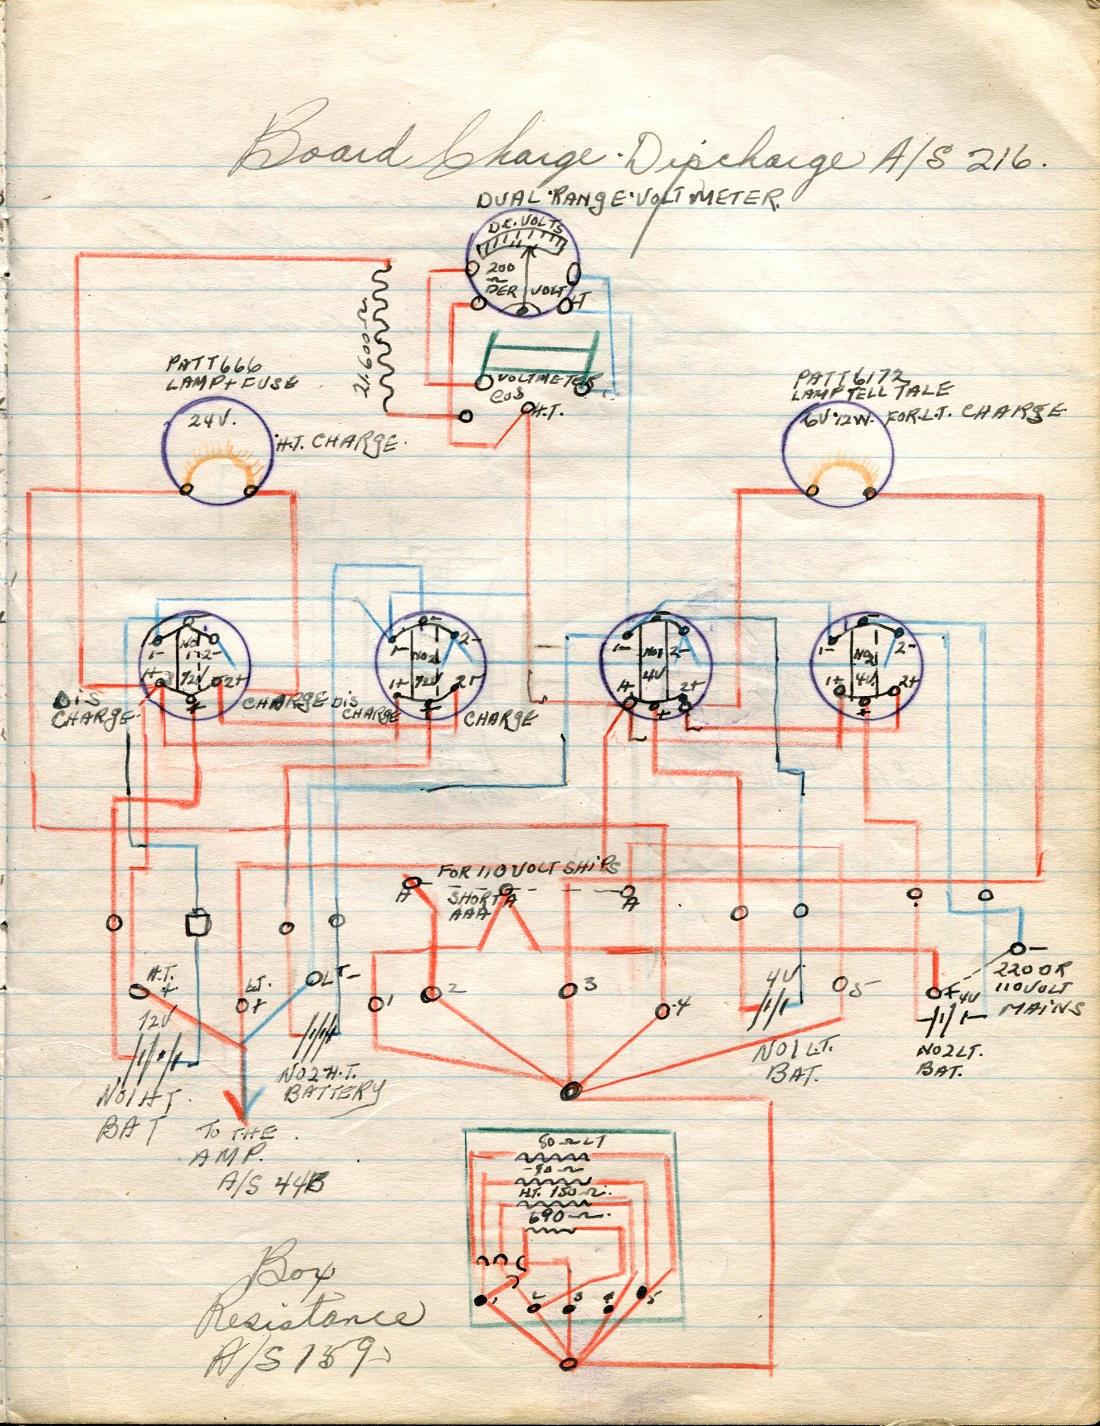 Board Charge-Discharge A/S 216.
DUAL·RANGE·VOLTMETER.
D.C. VOLTS
200
Ω
PER VOLT
HT
21600 Ω
VOLTMETER
COS
H.T.
PATT 666
LAMP + FUSE
24V.
H.T. CHARGE.
PATT 6172
LAMP TELL TALE
6V·12W. FOR L.T. CHARGE
1- NO1 2-
1+ 12V 2+
+
DIS
CHARGE
CHARGE
-
1- NO2 2-
1+ 12V 2+
+
DIS
CHARGE
CHARGE
-
1- NO1 2-
1+ 4V 2+
+
-
1- NO2 2-
1+ 4V 2+
+
FOR 110 VOLT SHIPS
SHORT
AAA
A
A
A
H.T.
+
LT.
+
LT-
1
2
3
4
5
12V
NO1 HT.
BAT
NO2 H.T.
BATTERY
4V
NO1 LT.
BAT.
+ 4V
NO2 LT.
BAT.
-
220 OR
110 VOLT
MAINS
TO THE
AMP.
A/S 44B
80 Ω LT
90 Ω
H.T. 150 Ω.
690 Ω.
1 2 3 4 5
Box
Resistance
A/S 159